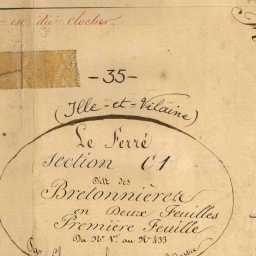 du clocher.
-35-
(Ille-et-Vilaine)
Le Ferré
Section C1
Dite des
Bretonnières
en Deux Feuilles
Première Feuille
Du No. 1er. au No. 433